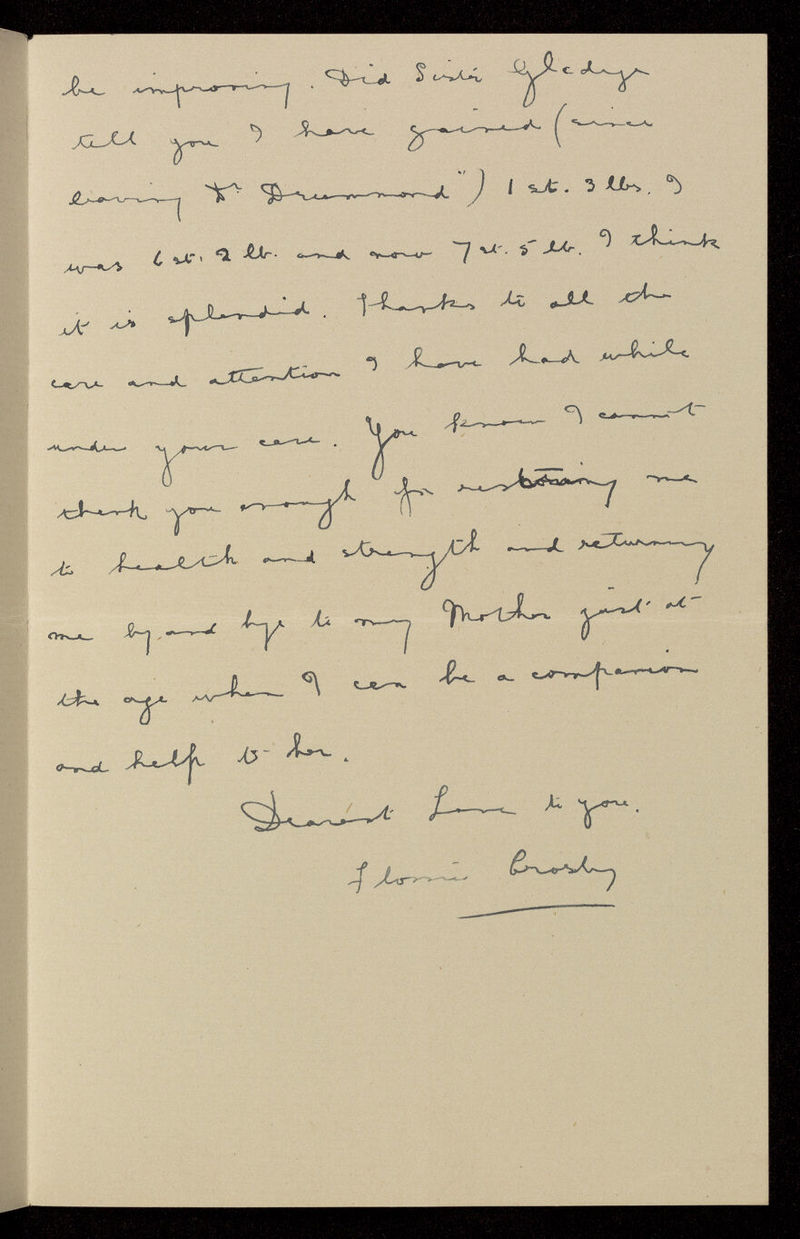 be improving. Did Sister Gladys
tell you I have gained (since
leaving Dr Drummond") 1 st. 3 lbs. I
was 6 st. 2 lb. and now 7 st. 5 lb. I think
it is splendid. Thanks to all the
care and attention I have had while
under your care. You know I cannot
thank you enough for restoring me
to health and strength and returning
me by and bye to my Mother just at
the age when I can be a companion
and help to her.
Dearest Love to you.
Florrie Crosby